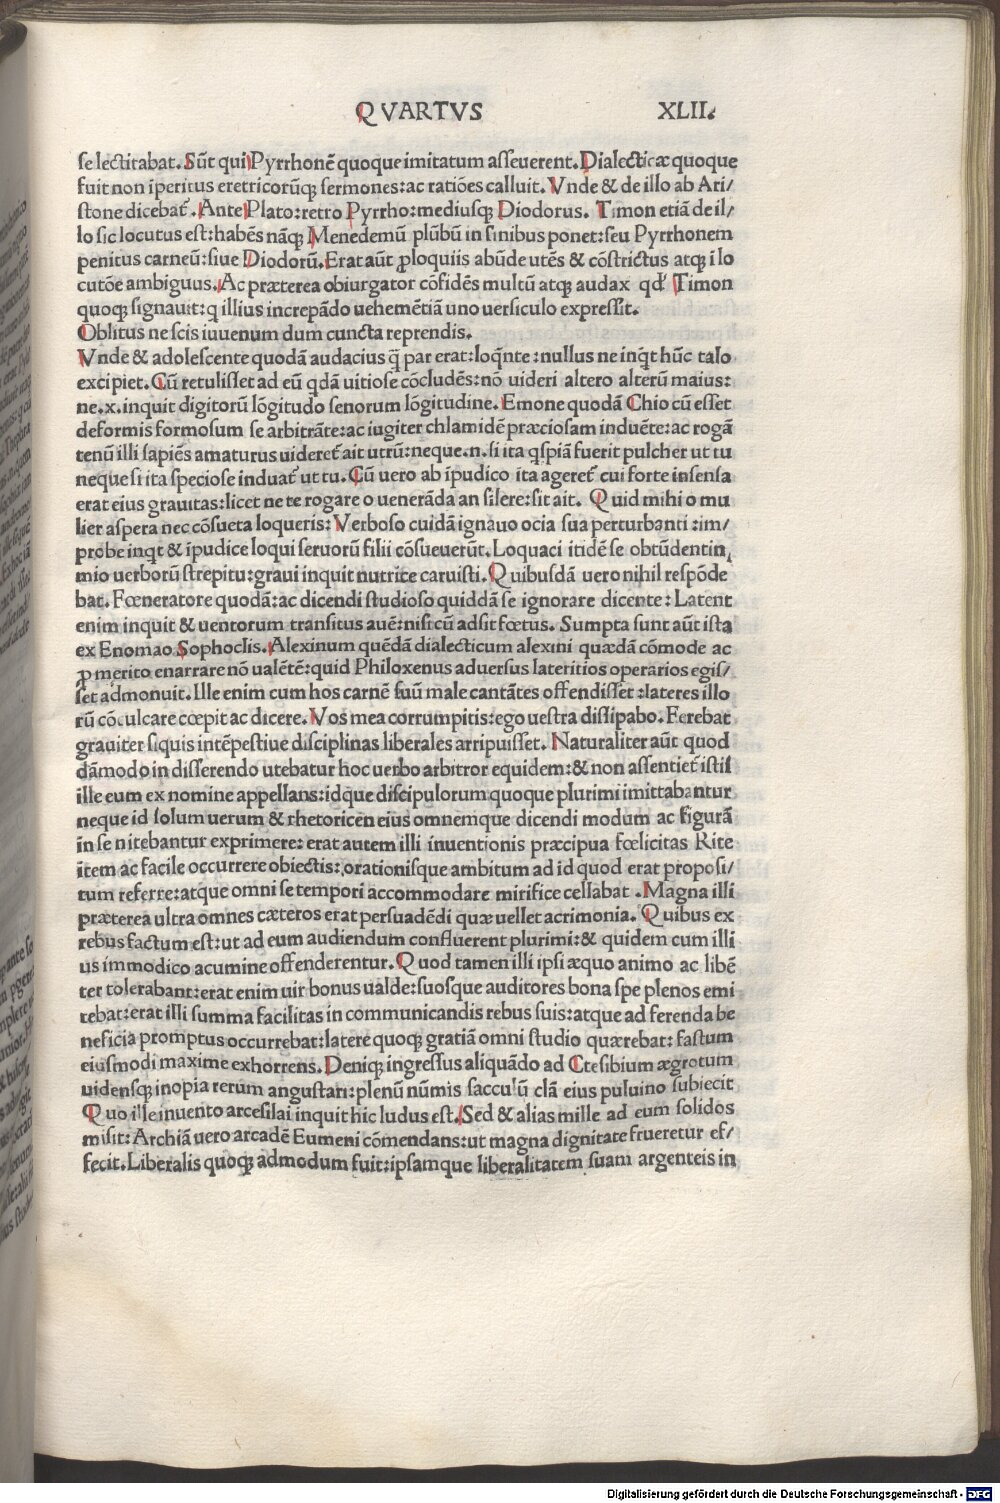 QVARTVS XLII.
se lectitabat. Sūt qui Pyrrhonē quoque imitatum asseuerent. Dialecticæ quoque
fuit non īperitus eretricorūq; sermones: ac ratiōes calluit. Vnde & de illo ab Ari/
stone dicebat᷑. Ante Plato: retro Pyrrho: mediusq; Diodorus. Timon etiā de il/
lo sic locutus est: habēs nāq; Menedemū plūbū in sinibus ponet: seu Pyrrhonem
penitus carneū: siue Diodorū. Erat aūt ꝓloquiis abūde utēs & cōstrictus atq; i lo
cutōe ambiguus. Ac præterea obiurgator cōfidēs multū atq; audax qd' Timon
quoq; signauit: q illius increpādo uehemētiā uno uersiculo expressit.
Oblitus nescis iuuenum dum cuncta reprendis.
Vnde & adolescente quodā audacius q̄ par erat: loqnte: nullus ne inqt hūc talo
excipiet. Cū retulisset ad eū qdā uitiose cōcludēs: nō uideri altero alterū maius:
ne. x. inquit digitorū lōgitudo senorum lōgitudine. Emone quodā Chio cū esset
deformis formosum se arbitrāte: ac iugiter chlamidē præciosam induēte: ac rogā
tenū illi sapiēs amaturus uideret᷑ ait utrū: neque. n. si ita qspiā fuerit pulcher ut tu
neque si ita speciose induat᷑ ut tu. Cū uero ab īpudico ita ageret᷑ cui forte insensa
erat eius grauitas: licet ne te rogare o uenerāda an silere: sit ait. Quid mihi o mu
lier aspera nec cōsueta loqueris: Verboso cuidā ignauo ocia sua perturbanti: im/
probe inqt & īpudice loqui seruorū filii cōsueuerūt. Loquaci itidē se obtūdentin
mio uerborū strepitu: graui inquit nutrice caruisti. Quibusdā uero nihil respōde
bat. Fœneratore quodā: ac dicendi studioso quiddā se ignorare dicente: Latent
enim inquit & uentorum transitus auē: nisi cū adsit fœtus. Sumpta sunt aūt ista
ex Enomao Sophoclis. Alexinum quēdā dialecticum alexini quædā cōmode ac
ꝓ merito enarrare nō ualētē: quid Philoxenus aduersus lateritios operarios egis/
set admonuit. Ille enim cum hos carnē suū male cantātes offendisset: lateres illo
rū cōculcare cœpit ac dicere. Vos mea corrumpitis: ego uestra dissipabo. Ferebat
grauiter siquis intēpestiue disciplinas liberales arripuisset. Naturaliter aūt quod
dāmodo in disserendo utebatur hoc uerbo arbitror equidem: & non assentiet᷑ istis
ille eum ex nomine appellans: idque discipulorum quoque plurimi imittabantur
neque id solum uerum & rhetoricen eius omnemque dicendi modum ac figurā
in se nitebantur exprimere: erat autem illi inuentionis præcipua fœlicitas Rite
item ac facile occurrere obiectis: orationisque ambitum ad id quod erat proposi/
tum referre: atque omni se tempori accommodare mirifice cellabat. Magna illi
præterea ultra omnes cæteros erat persuadēdi quæ uellet acrimonia. Quibus ex
rebus factum est: ut ad eum audiendum confluerent plurimi: & quidem cum illi
us immodico acumine offenderentur. Quod tamen illi ipsi æquo animo ac libē
ter tolerabant: erat enim uir bonus ualde: suosque auditores bona spe plenos emi
tebat: erat illi summa facilitas in communicandis rebus suis: atque ad ferenda be
neficia promptus occurrebat: latere quoq; gratiā omni studio quærebat: fastum
eiusmodi maxime exhorrens. Deniq; ingressus aliquādo ad Ctesibium ægrotum
uidensq; inopia rerum angustari: plenū nūmis sacculū clā eius puluino subiecit
Quo ille inuento arcesilai inquit hic ludus est. Sed & alias mille ad eum solidos
misit: Archiā uero arcadē Eumeni cōmendans: ut magna dignitate frueretur ef/
fecit. Liberalis quoq; admodum fuit: ipsamque liberalitatem suam argenteis in
Digitalisierung gefördert durch die Deutsche Forschungsgemeinschaft - DFG